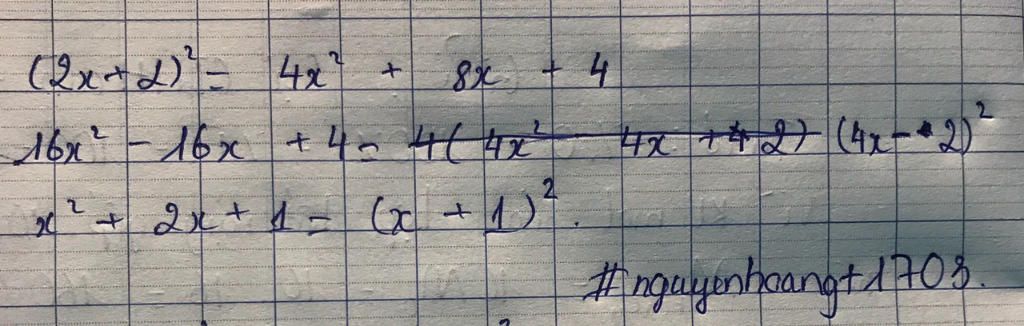 (2x+2)² = 4x² + 8x + 4
16x² - 16x + 4 = ~~4(4x² 4x + 4 2)~~ (4x - 2)²
x² + 2x + 1 = (x + 1)².
#nguyenhoang+1703.